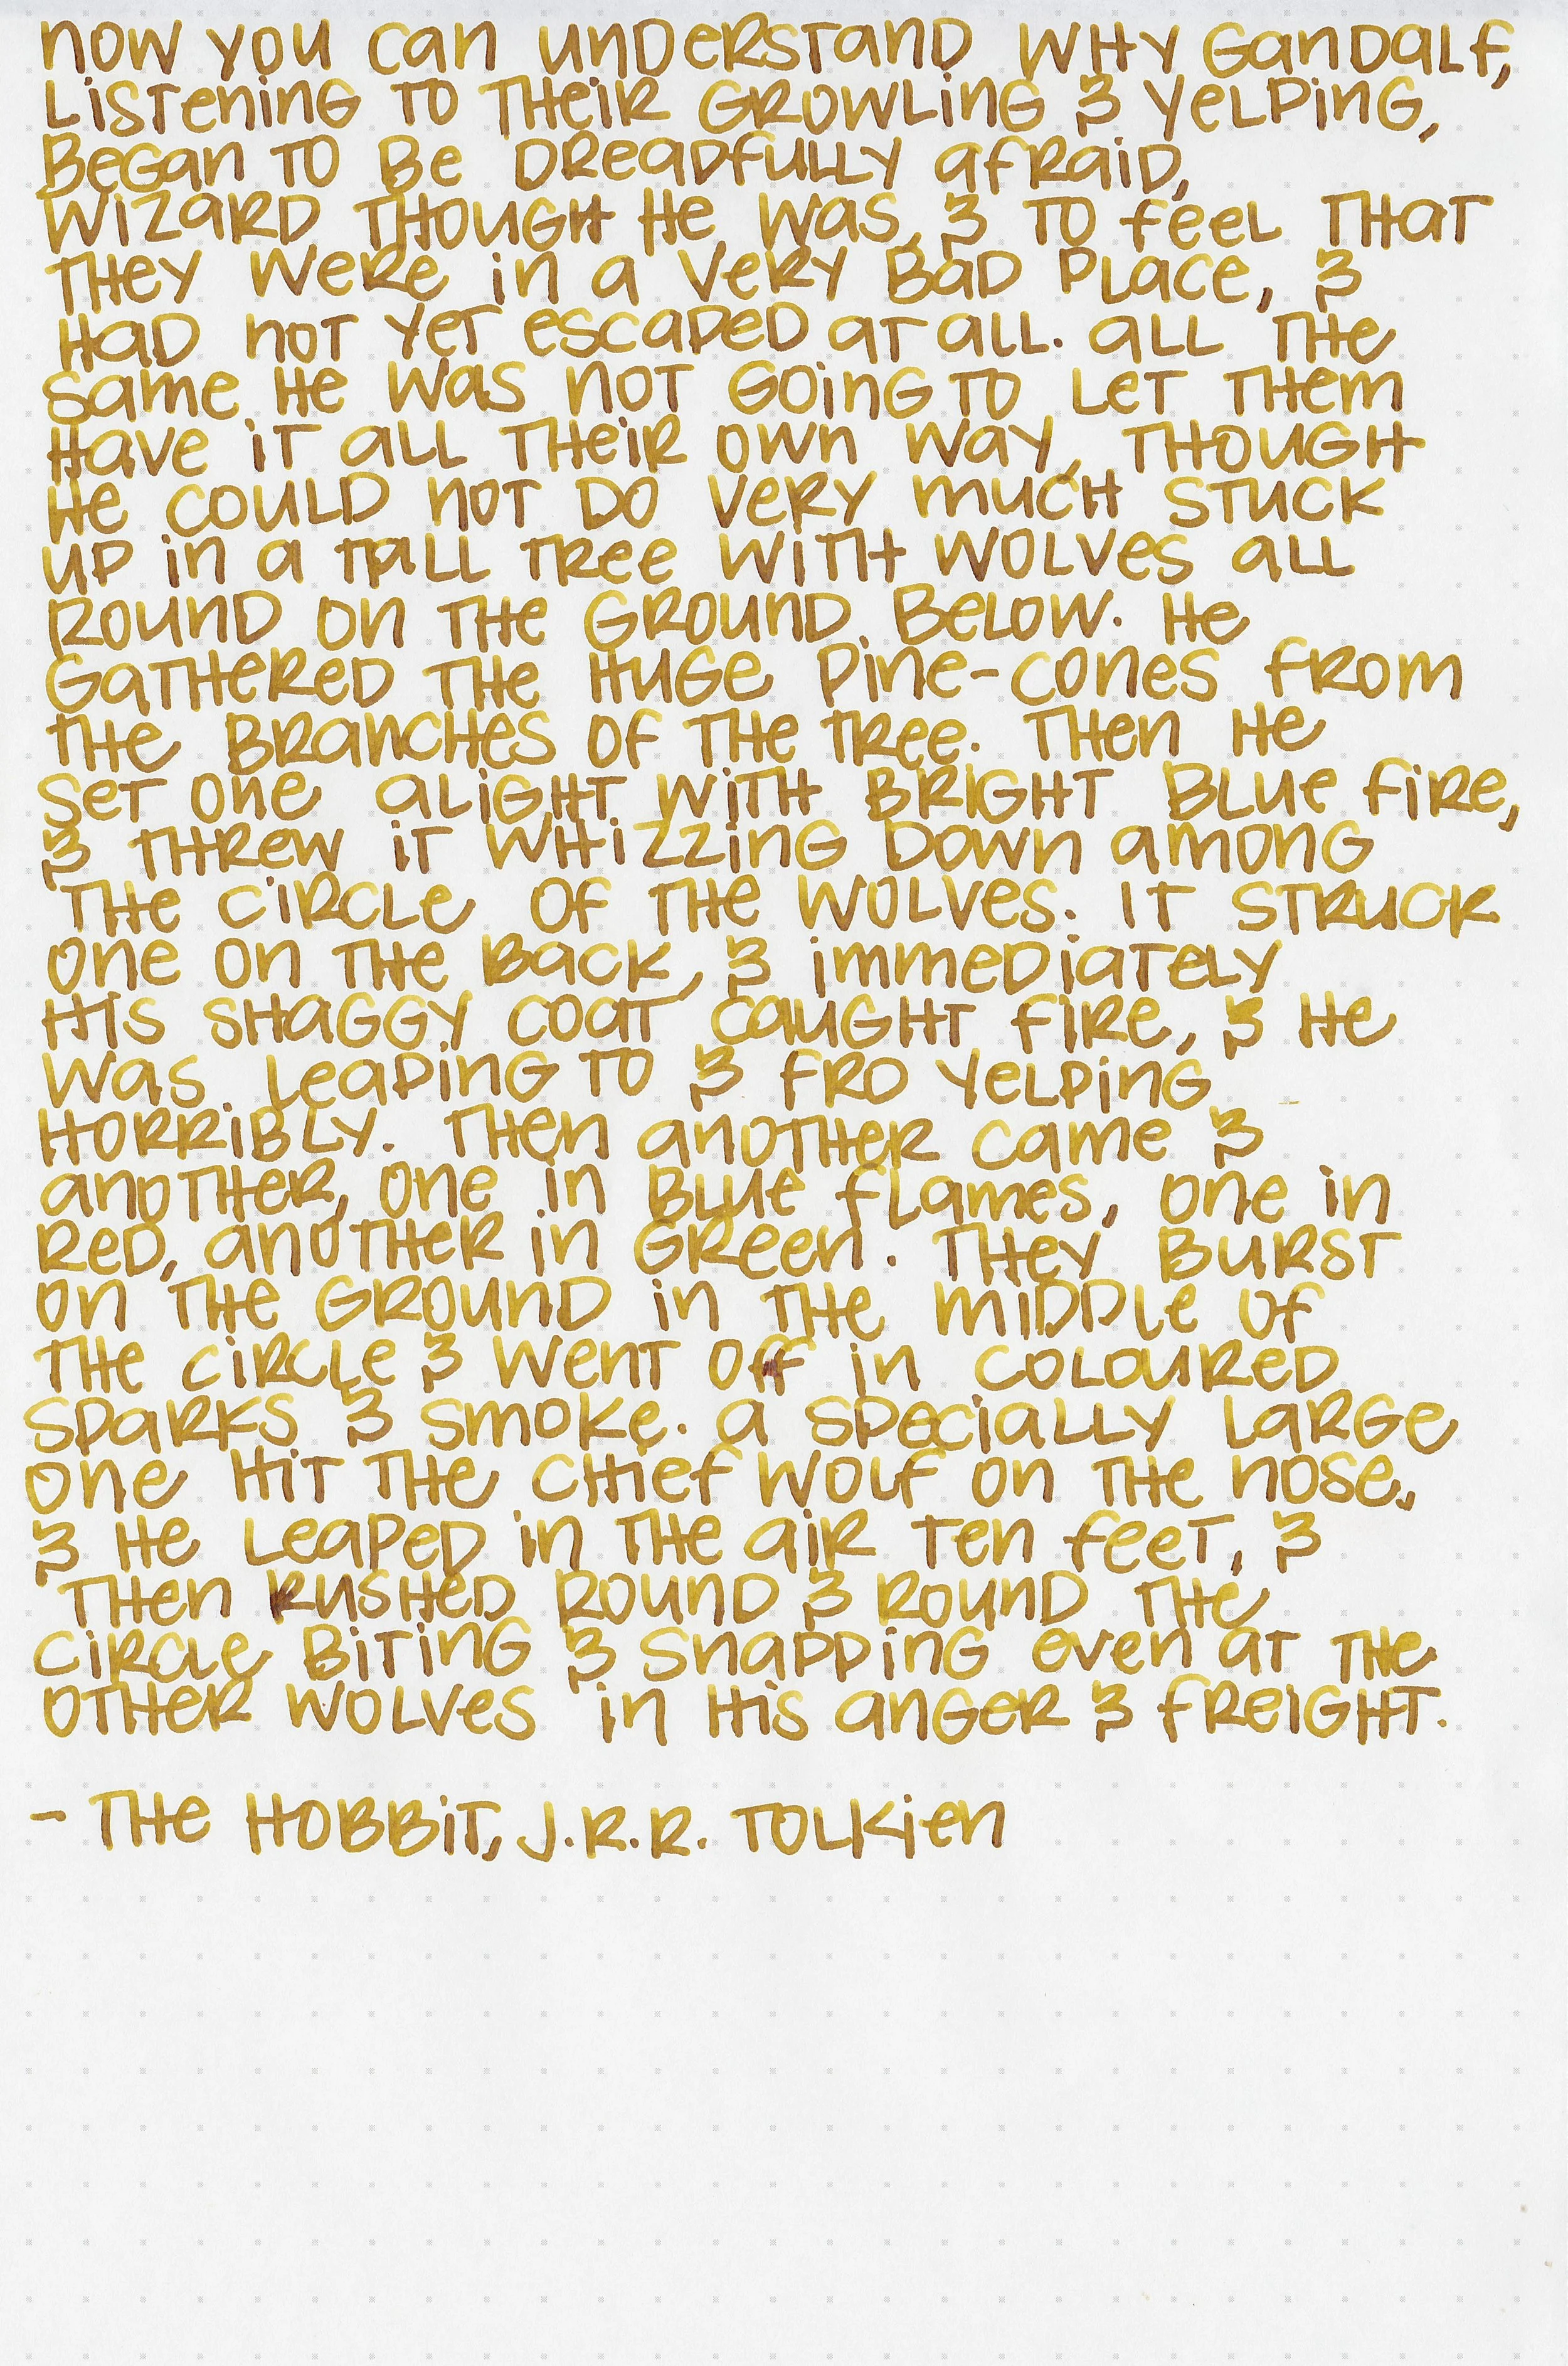 Now you can understand why Gandalf,
listening to their growling & yelping,
began to be dreadfully afraid,
wizard though he was, & to feel that
they were in a very bad place, &
had not yet escaped at all. All the
same he was not going to let them
have it all their own way, though
he could not do very much stuck
up in a tall tree with wolves all
round on the ground below. He
gathered the huge pine-cones from
the branches of the tree. Then he
set one alight with bright blue fire,
& threw it whizzing down among
the circle of the wolves. It struck
one on the back, & immediately
his shaggy coat caught fire, & he
was leaping to & fro yelping
horribly. Then another came &
another, one in blue flames, one in
red, another in green. They burst
on the ground in the middle of
the circle & went off in coloured
sparks & smoke. A specially large
one hit the chief wolf on the nose,
& he leaped in the air ten feet, &
then rushed round & round the
circle biting & snapping even at the
other wolves in his anger & freight.
- The Hobbit, J.R.R. Tolkien